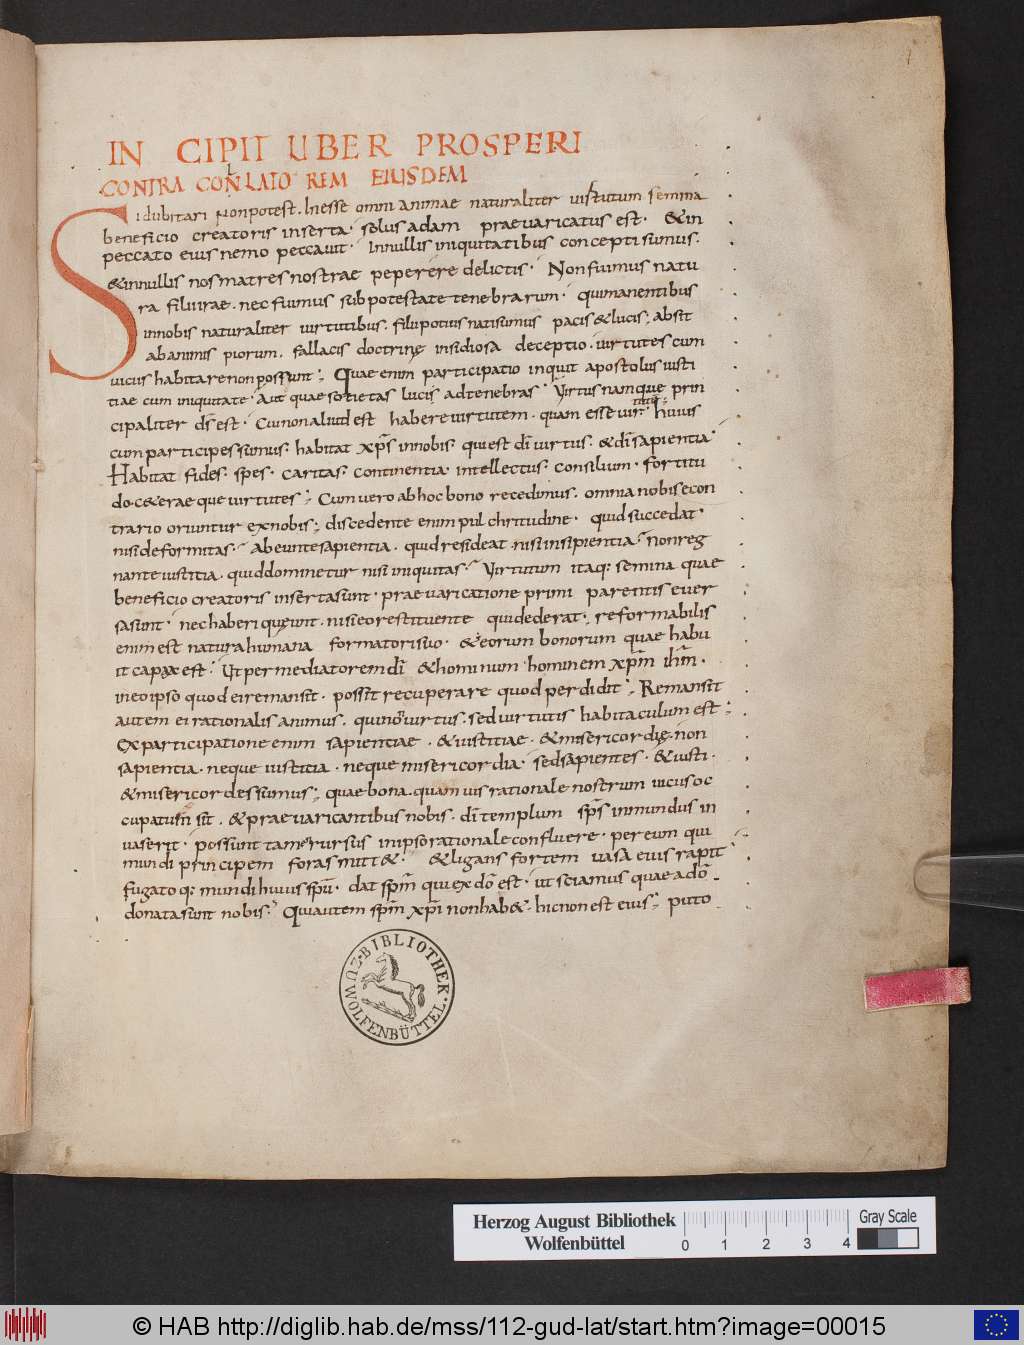 1
IN CIPIT LIBER PROSPERI
CONTRA CONLATOREM EIUSDEM
Si dubitari non potest. Inesse omni animae naturaliter virtutum semina
beneficio creatoris inserta; solus adam praevaricatus est. & in
peccato eius nemo peccavit. Innullis iniquitatibus concepti sumus.
& innullis nos matres nostrae peperere delictis. Non fuimus natu
ra filii irae. nec fuimus sub potestate tenebrarum. qui manentibus
innobis naturaliter virtutibus. filii potius nati sumus pacis & lucis; absit
ab animis piorum. fallacis doctrinę insidiosa deceptio. virtutes cum
viciis habitare non possunt; Quae enim participatio inquit apostolus iusti
tiae cum iniquitate. Aut quae societas lucis ad tenebras. Virtus namque prin
cipaliter dS est. Cui non aliud est habere virtutem. quam esse virtutem; huius
cum participes sumus. habitat xpS innobis. qui est di virtus. & di sapientia.
Habitat fides. spes. caritas. continentia. intellectus. consilium. fortitu
do. c&erae que virtutes; Cum vero ab hoc bono recedimus. omnia nobis econ
trario oriuntur ex nobis; discedente enim pulchritudine. quid succedat.
nisi deformitas. abeunte sapientia. quid resideat. nisi insipientia. non reg
nante iustitia. quid dominetur nisi iniquitas. Virtutum itaq: semina quae
beneficio creatoris inserta sunt. praevaricatione primi parentis ever
sa sunt. nec haberi queunt. nisi eo restituente qui dederat. reformabilis
enim est natura humana formatori suo. & eorum bonorum quae habu
it capax est. Ut per mediatorem di & hominum hominem xpm ihm.
in eo ipso quod ei remansit. possit recuperare quod perdidit; Remansit
autem ei rationalis animus. qui non virtus. sed virtutis habitaculum est;
Ex participatione enim sapientiae. & iustitiae. & misericordię. non
sapientia. neque iustitia. neque misericordia. sed sapientes. & iusti.
& misericordes sumus; quae bona. quamvis rationale nostrum viciis oc
cupatum sit. & praevaricantibus nobis. di templum spS inmundus in
vaserit. possunt tamen rursus in ipso rationale confluere. per eum qui
mundi principem foras mitt&. & ligans fortem vasa eius rapit.
fugato q: mundi huius spu. dat spm qui ex do est. ut sciamus quae a do
donata sunt nobis. Qui autem spm xpi non hab&. hic non est eius; puto
BIBLIOTHEK. ZU WOLFENBÜTTEL.
Herzog August Bibliothek
Wolfenbüttel
0 1 2 3 4
Gray Scale
© HAB http://diglib.hab.de/mss/112-gud-lat/start.htm?image=00015